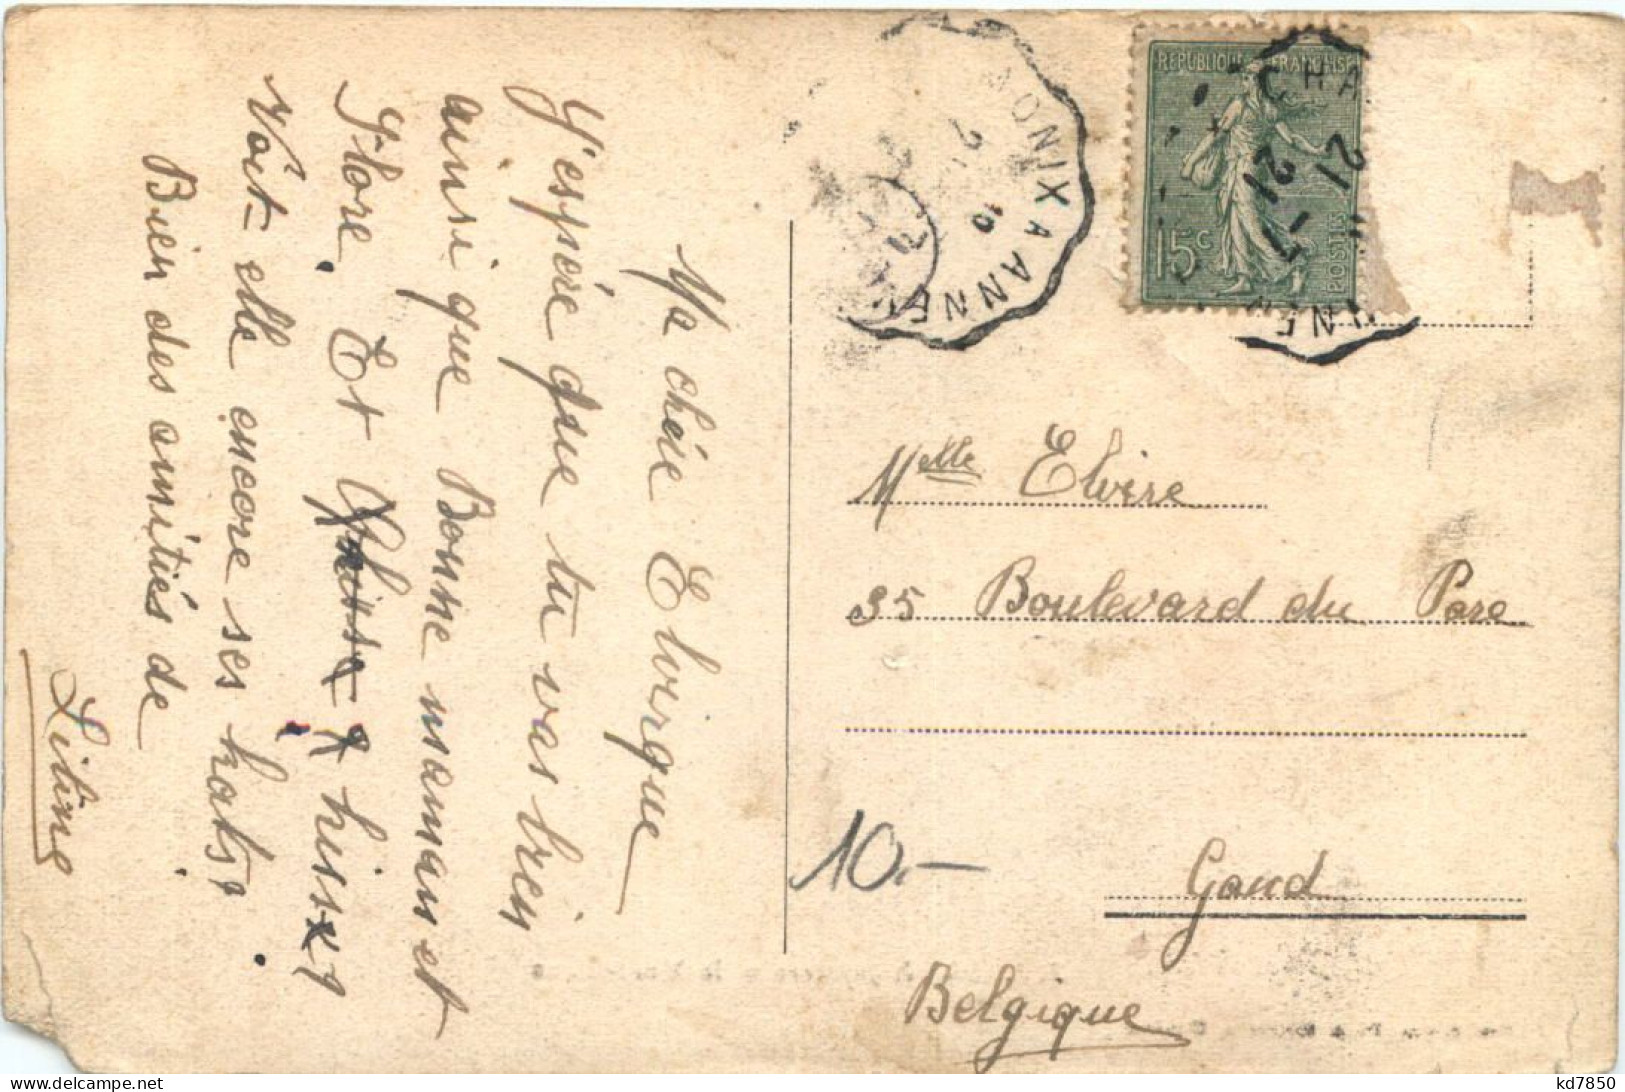 Ma chére Elvirque
J'espére que tu vas bien
ainsi que Bonne maman et
Flore. Et
Voit-elle encore ses
Bien des amitiés de
Titine
MONIX A ANNE
21
10
REPUBLIQUE FRANÇAISE
15c
POSTES
CHA
21
21-7
NNE
Melle Elvire
35 Boulevard du Parc
Gand
Belgique
10.-
kd7850